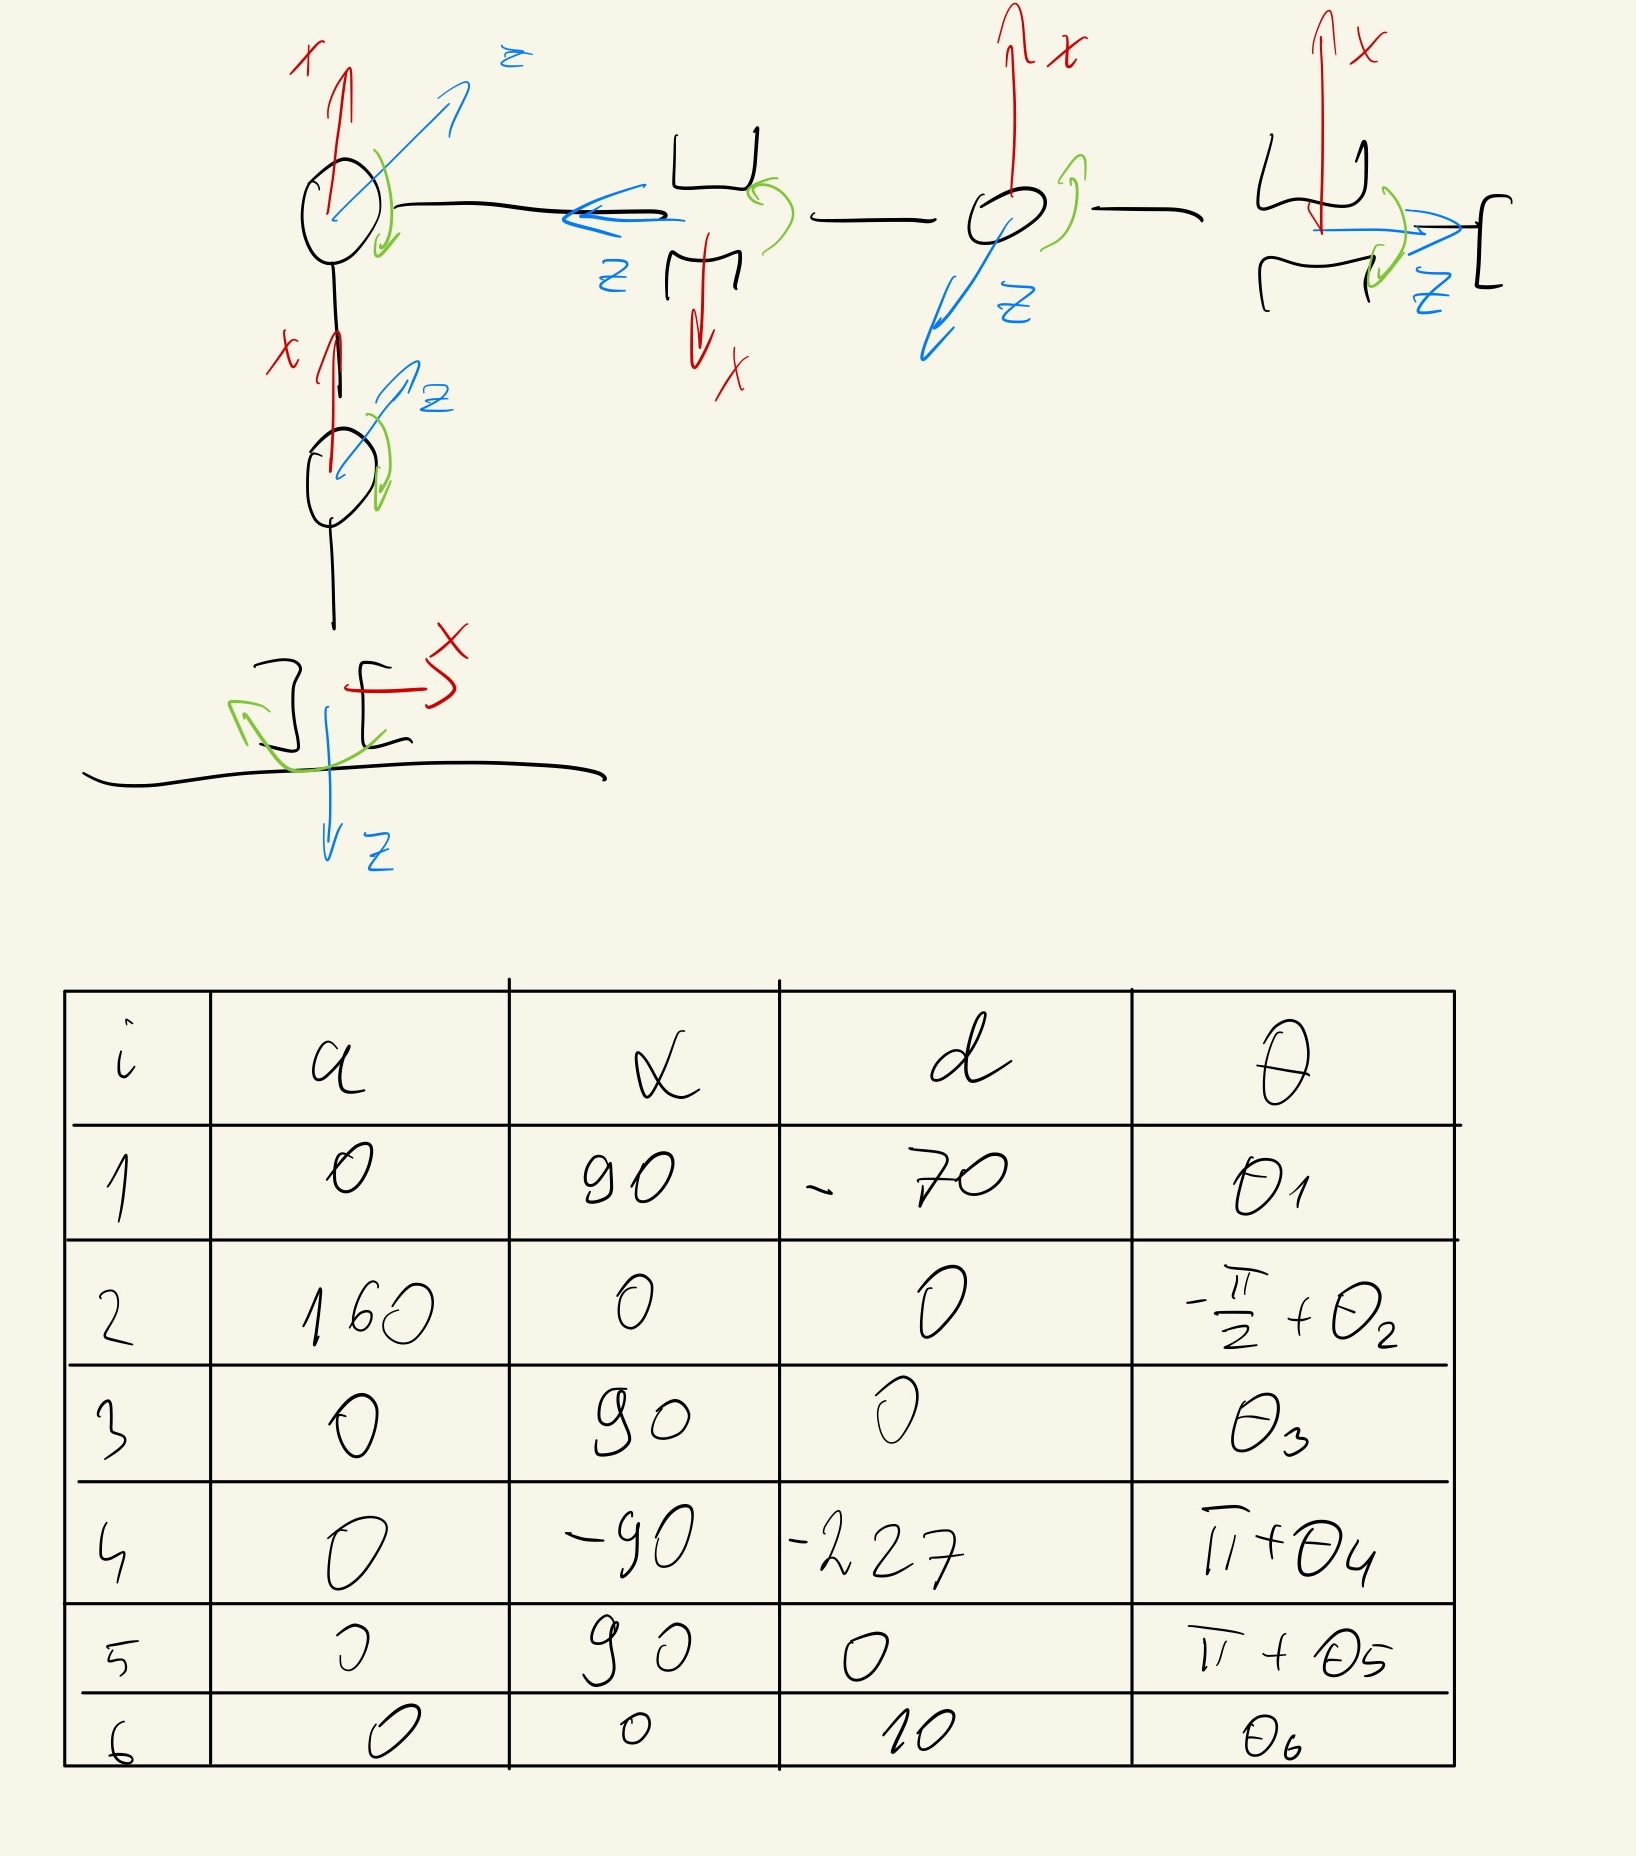 x z x x
z x
x z z
x
x
z
i a α d θ
1 0 90 - 70 θ1
2 160 0 0 -π/2 + θ2
3 0 90 0 θ3
4 0 -90 -227 π+θ4
5 0 90 0 π + θ5
6 0 0 10 θ6